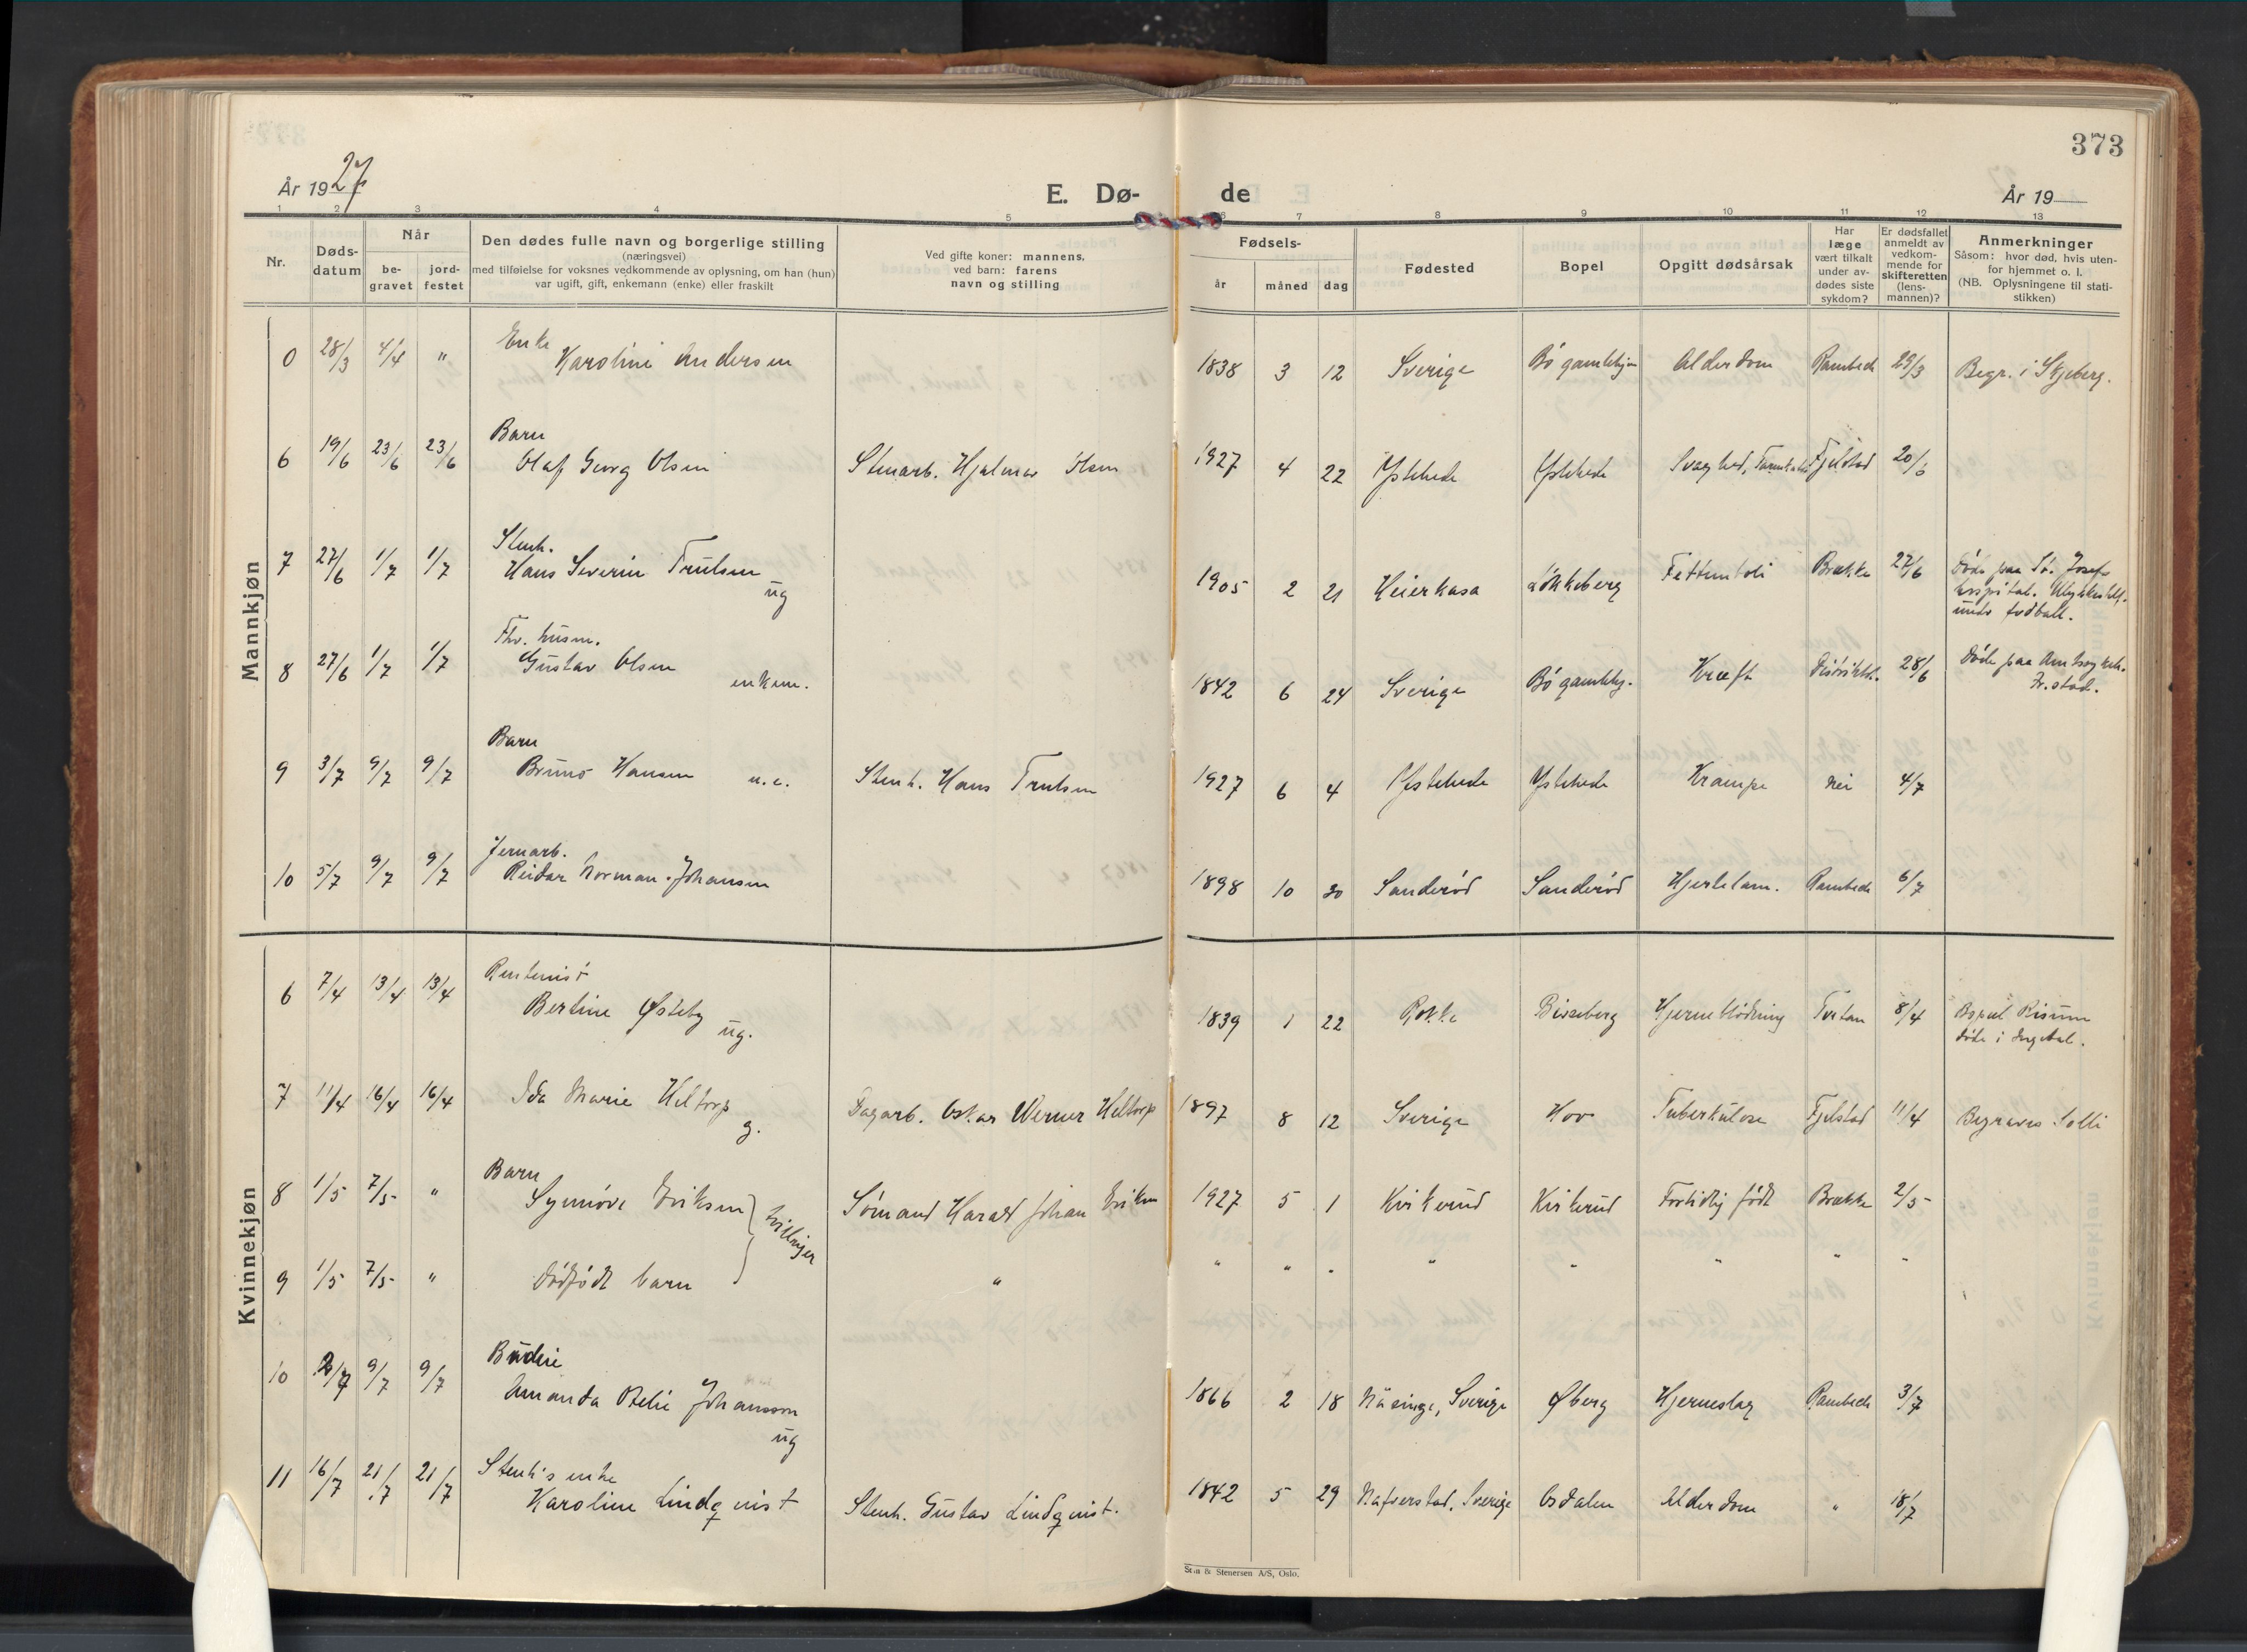 373
År 1927
E. Dø-
de
År 19
1 2 3 4 5 6 7 8 9 10 11 12 13
Nr.
Døds-
datum
Når
be-
gravet
jord-
festet
Den dødes fulle navn og borgerlige stilling
(næringsvei)
med tilføielse for voksnes vedkommende av oplysning, om han (hun)
var ugift, gift, enkemann (enke) eller fraskilt
Ved gifte koner: mannens,
ved barn: farens
navn og stilling
Fødsels-
år
måned
dag
Fødested
Bopel
Opgitt dødsårsak
Har
læge
vært tilkalt
under av-
dødes siste
sykdom?
Er dødsfallet
anmeldt av
vedkom-
mende for
skifteretten
(lens-
mannen)?
Anmerkninger
Såsom: hvor død, hvis uten-
for hjemmet o. l.
(NB. Oplysningene til stati-
stikken)
Mannkjøn
Enke
0 28/3 4/4 " Karoline Andersen 1838 3 12 Sverige Bø gamlehjem Alderdom Rambech 29/3 Begr. i Skjeberg.
Barn
6 19/6 23/6 23/6 Olaf Georg Olsen Stenarb. Hjalmar Olsen 1927 4 22 Ystehede Ystehede Svaghed, Fjelstad 20/6
Stenh.
7 27/6 1/7 1/7 Hans Severin Trulsen 1905 2 21 Heierkasa Løkkeberg Fettemboli Brække 27/6 Døde paa St. Josefs
ug hospital. Ulykkestilf.
under fodball.
Fhv. husm.
8 27/6 1/7 1/7 Gustav Olsen 1842 6 24 Sverige Bø gamlehj. Kræft 28/6 Døde paa Amtssykeh.
enkem. Fr.stad.
Barn
9 3/7 9/7 9/7 Bruno Hansen u.e. Stenh. Hans Trulsen 1927 6 4 Ystehede Ystehede Krampe nei 4/7
Jernarb.
10 5/7 9/7 9/7 Reidar Norman Johansen 1898 10 30 Sanderød Sanderød Hjertelam. Rambech 6/7
Kvinnekjøn
Rentenist
6 7/4 13/4 13/4 Bertine Østeby 1839 1 22 Rokke Bisseberg Hjerneblødning Tortan 8/4 Bopæl Risum
ug. døde i Ingedal.
7 11/4 16/4 16/4 Ida Marie Heltorp Dagarb. Oskar Werner Heltorp 1897 8 12 Sverige Hov Tuberkulose Fjelstad 11/4 Begraves Solli
g.
Barn
8 1/5 7/5 " Synnøve Eriksen Sømand Harald Johan Eriksen 1927 5 1 Kirkerud Kirkerud Fortidlig født Brække 2/5
tvillinger
9 1/5 7/5 " Dødfødt barn " " " " " " " " "
Budeie
10 2/7 9/7 9/7 Amanda Otelie Johansson 1866 2 18 Näsinge, Sverige Øberg Hjerneslag Rambech 3/7
ug
Stenh's enke
11 16/7 21/7 21/7 Karoline Lindqvist Stenh. Gustav Lindqvist. 1842 5 29 Nafverstad, Sverige Osdalen Alderdom " 18/7
& Stenersen A/S, Oslo.